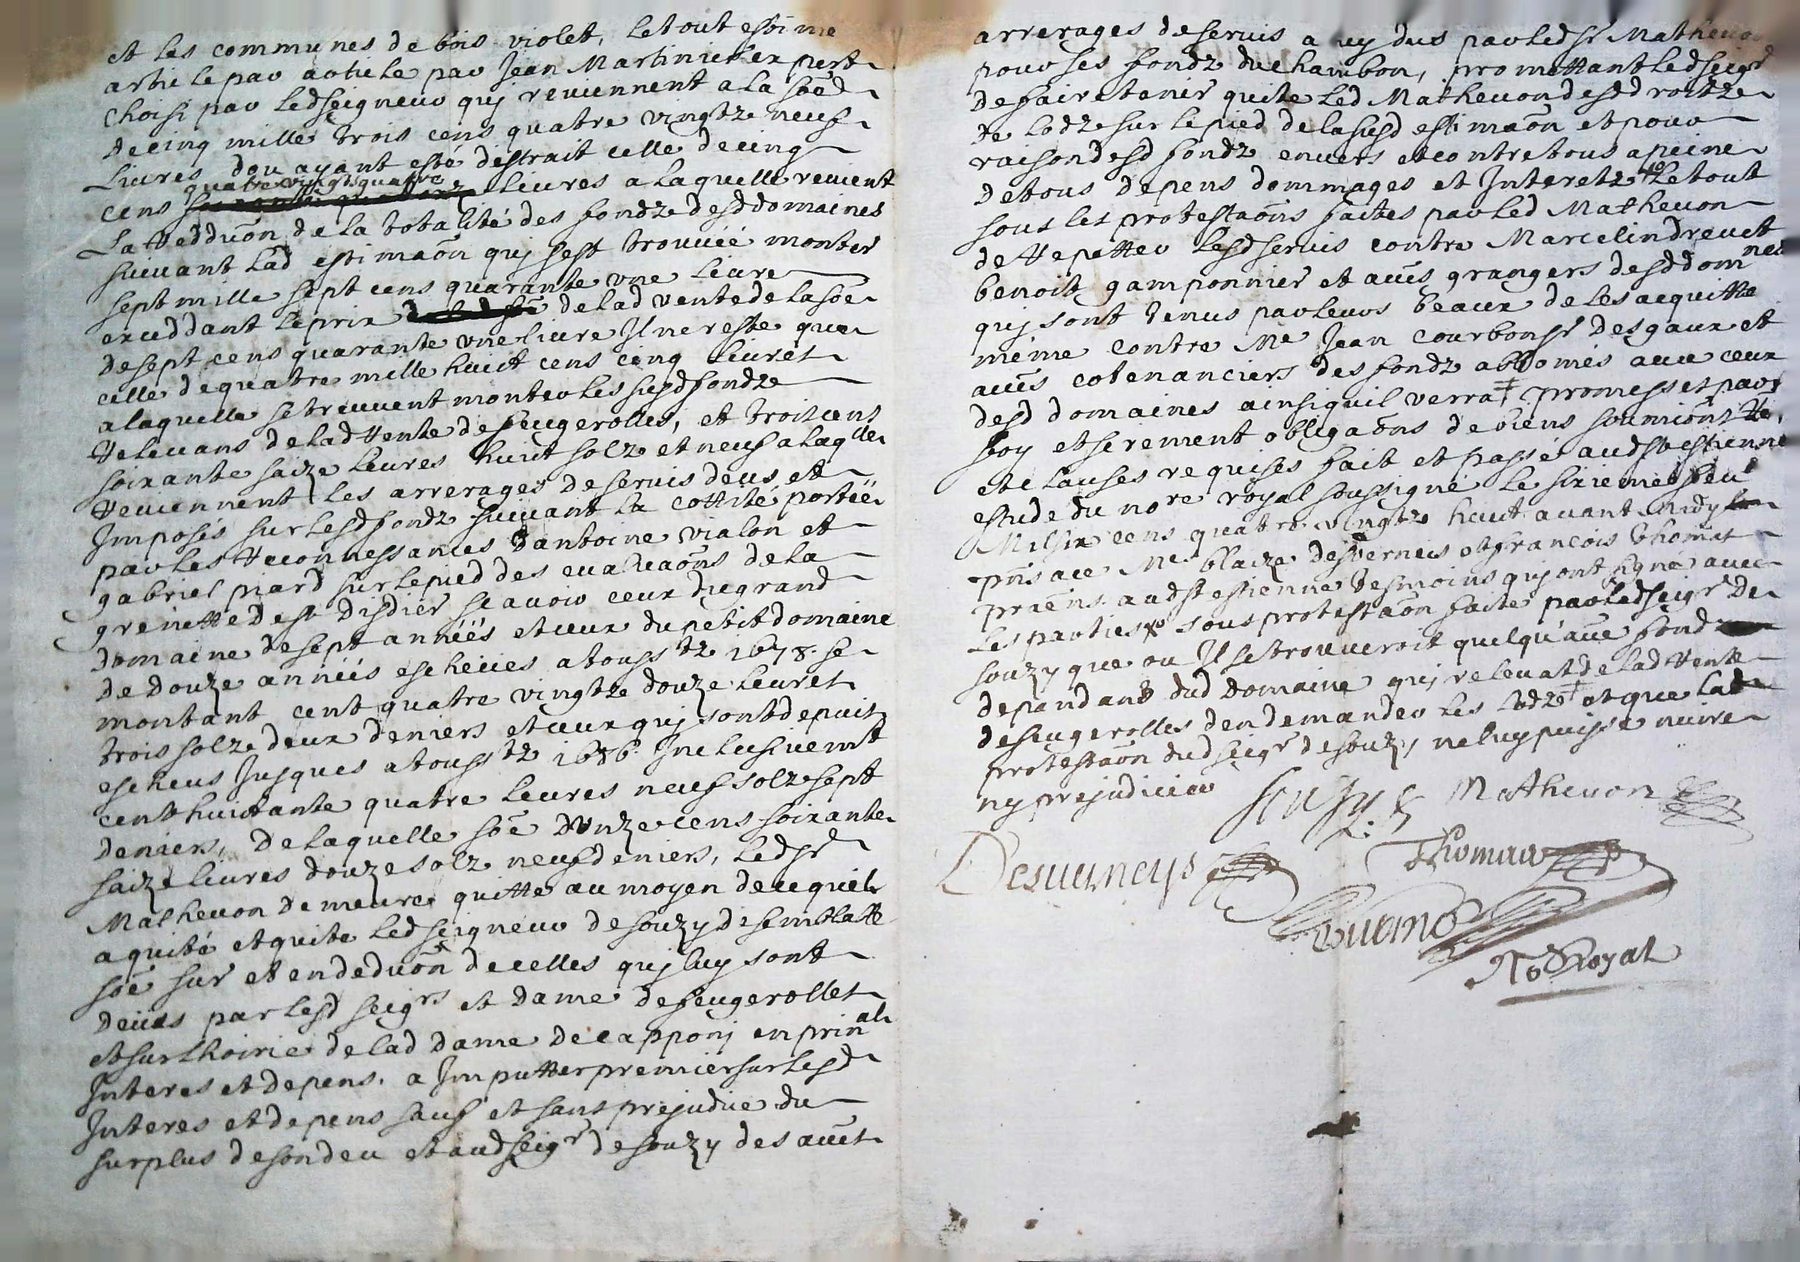 et les communes de bois violet, le tout estimé
article par article par Jean Martinier expert
choisi par led seigneur quj reuiennent a la soē
de cinq mille trois cens quatre vingtz neuf
Liures dou ayant esté distrait celle de cinq
quatre vingts quattre
cens livres a laquelle reuient
La redduōn de la totalité des fondz desd domaines
suiuant lad estimaōn quj sest trouuéé monter
sept mille sept cens quarante vne liure
exceddant le prix de lad vente de la soē
de sept cens quarante vne liure Il ne reste que
celle de quatre mille huict cens cinq liures
a laquelle se treuuent monter les susd fondz
Releuans de lad Rente de feugerolles, et trois cens
soixante saize liures huit solz et neuf a laqlle
Reuiennent les arrerages de seruis deus et
Imposés sur lesd fondz suiuant la cottité portéé
par les Reconnessances dantoine vialon et
gabriel piard sur le pied des eualuaōns de la
grenette de st disdier scauoir ceux du grand
domaine de sept annéés et ceux du petit domaine
de douze annéés escheues a touss tz 1678. se
montant cent quatre vingtz douze liures
trois solz deux deniers et ceux quj sont depuis
escheus Jusques a touss tz 1686. Inclusiuemt
cent huictante quatre liures neuf solz sept
deniers, de laquelle soē donze cens soixante
saize liures douze solz neuf deniers, led sr
Matheuon demeure quitte au moyen de ce quil
a quité et quite led seigneur de souzy de semblable
soē sur et en deduōn de celles quj luy sont
deües par lesd seigrs et dame de feugerolles
et sur lhoirie de lad dame de capponj en prinal
Interes et depens. a Imputter premier sur lesd
Interes et depens sauf et sans prejudice du
surplus de son deu et aud seigr de souzy des autt
arrerages de seruis a luy dus par led sr Matheuon
pour ses fondz du chambon, promettant led seigr
de faire tenir quite led Matheuon desd droitz
de lodz sur le pied de la susd estimaōn et pour
raison desd fondz enuers et contre tous a peine
de tous depens dommages et Interetz le tout
sous les protestaōns faites par led Matheuon
de Repetter lesd seruis contre Marcelin dreuet
benoit gamponnier et autres grangers desd domnes
quj sont tenus par leurs beaux de les acquitter
méme contre Me Jean courbon sr des gaux et
autres cotenanciers des fondz abbomés auec ceux
desd domaines ainsi quil verra promess et par
foy et serement obligaōns de biens soumiōns Re.
et clauses requises fait et passé aud st estienne
estude du nore royal soussigné le sixieme
Mil six cens quatre vingtz huit auant midy
pn̄s a ce Me blaize desuerneis et francois thomas
praēns aud st estienne tesmoins quj ont signé auec
les parties sous protestaōn faite par led seigr de
souzy que ou Il se trouueroit quelqu'autre fond
depandant dud domaine quj releuat de lad Rente
de feugerolles den demander les lodz et que lad
protestaōn dud seigr de souzy ne luy puisse nuire
ny prejudicier
Souzy Matheuon
Desuerneys Thomas
Nore Royal